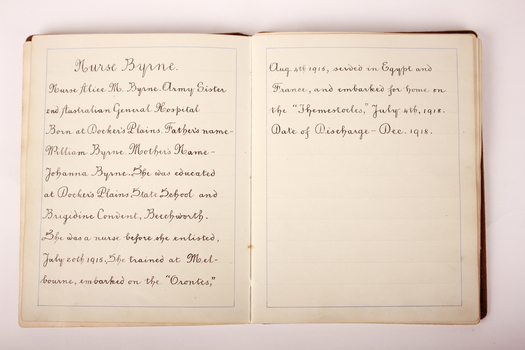 Nurse Byrne.
Nurse Alice M. Byrne Army Sister
2nd Australian General Hospital
Born at Docker's Plains. Father's name-
William Byrne. Mother's Name-
Johanna Byrne. She was educated
at Docker's Plains State School and
Brigidine Convent, Beechworth.
She was a nurse before she enlisted,
July 20th 1915, She trained at Mel-
bourne, embarked on the "Orontes,"
Aug. 4th 1915, served in Egypt and
France, and embarked for home on
the "Themestocles," July 4th, 1918.
Date of Discharge - Dec. 1918.